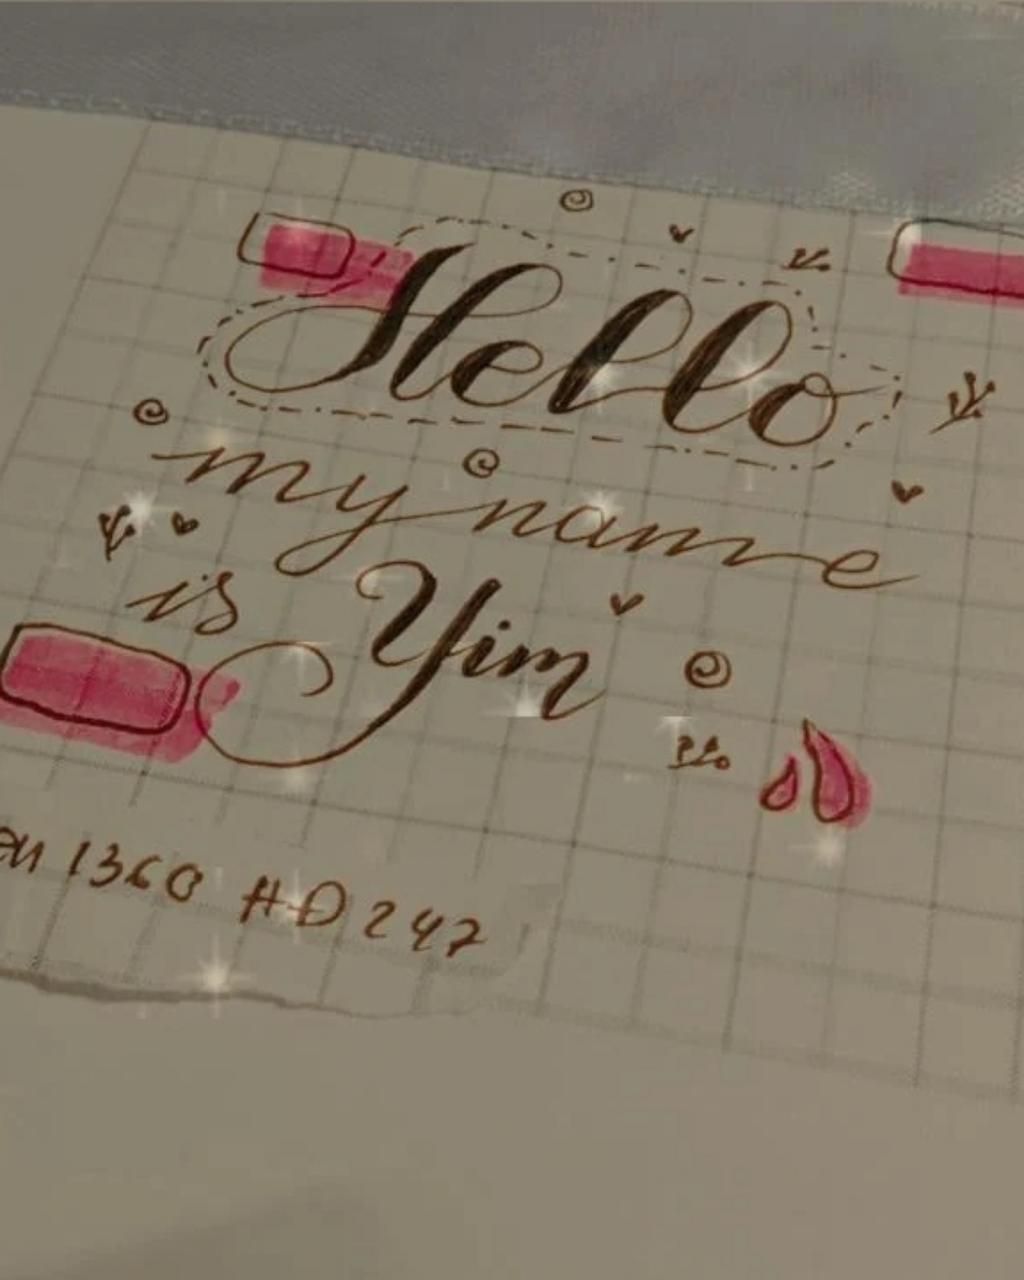 Hello
my name
is Yim
1360 HD 247